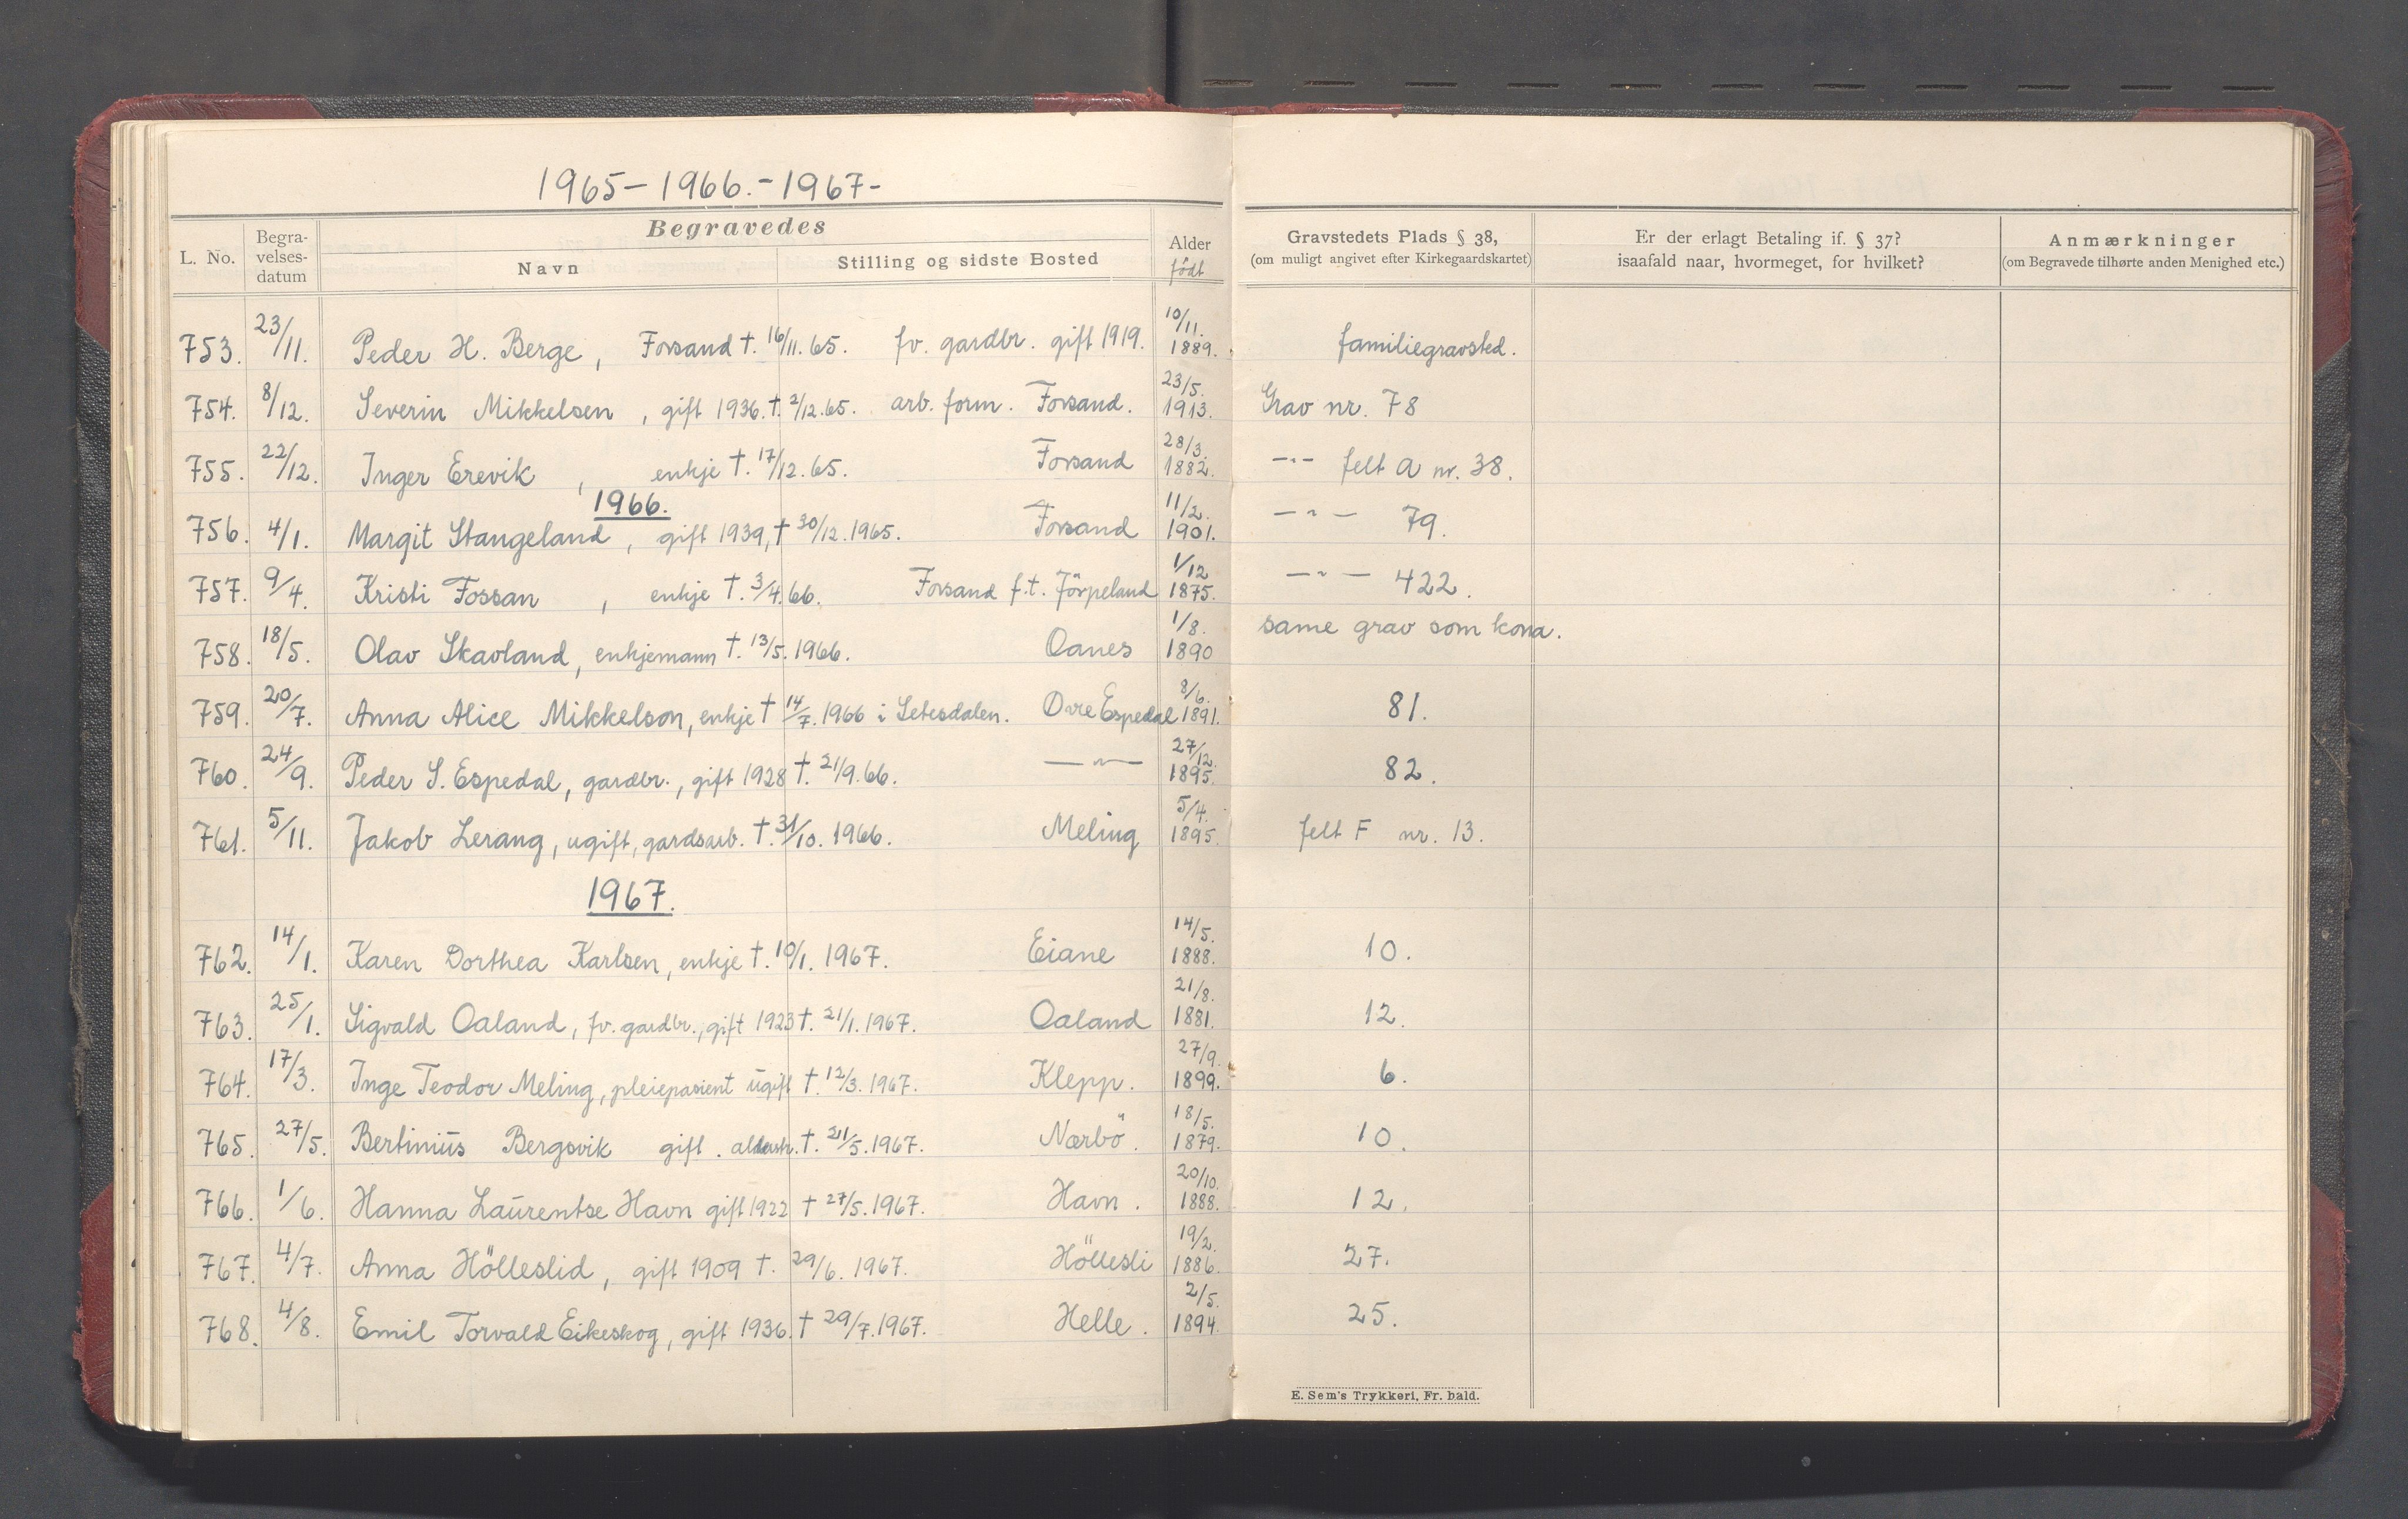 1965 – 1966. – 1967 –
L. No.
Begra-
velses-
datum
Begravedes
Navn
Stilling og sidste Bosted
Alder
født
Gravstedets Plads § 38,
(om muligt angivet efter Kirkegaardskartet)
Er der erlagt Betaling if. § 37?
isaafald naar, hvormeget, for hvilket?
Anmærkninger
(om Begravede tilhørte anden Menighed etc.)
753. 23/11. Peder H. Berge, Forsand †. 16/11. 65. fv. gardbr. gift 1919. 10/11. 1889. familiegravsted.
754. 8/12. Severin Mikkelsen, gift 1936. †. 2/12. 65. arb. form. Forsand. 23/5. 1913. Grav nr. 78
755. 22/12. Inger Erevik, enkje †. 17/12. 65. Forsand 28/3. 1882. –"– felt A nr. 38.
1966.
756. 4/1. Margit Stangeland, gift 1939, † 30/12. 1965. Forsand 11/2. 1901. –"– 79.
757. 9/4. Kristi Fossan, enkje †. 3/4. 66. Forsand f.t. Jörpeland 1/12 1875. –"– 422.
758. 18/5. Olav Skavland, enkjemann †. 13/5. 1966. Oanes 1/8. 1890 same grav som kona.
759. 20/7. Anna Alice Mikkelson, enkje † 14/7. 1966 i Setesdalen. Øvre Espedal 8/6. 1891. 81.
760. 24/9. Peder S. Espedal, gardbr., gift 1928 †. 21/9. 66. –"– 27/12. 1895. 82.
761. 5/11. Jakob Lerang, ugift, gardsarb. †. 31/10. 1966. Meling 5/4. 1895. felt F nr. 13.
1967.
762. 14/1. Karen Dorthea Karlsen, enkje †. 10/1. 1967. Eiane 14/5. 1888. 10.
763. 25/1. Sigvald Oaland, fv. gardbr., gift 1923 †. 21/1. 1967. Oaland 21/8. 1881. 12.
764. 17/3. Inge Teodor Meling, pleiepasient ugift †. 12/3. 1967. Klepp. 27/9. 1899. 6.
765. 27/5. Bertinius Bergsvik gift. †. 21/5. 1967. Nærbö. 18/5. 1879. 10.
766. 1/6. Hanna Laurentse Havn gift 1922 † 27/5. 1967. Havn. 20/10. 1888. 12.
767. 4/7. Anna Hölleslid, gift 1909 †. 29/6. 1967. Höllesli 19/2. 1886. 27.
768. 4/8. Emil Torvald Eikeskog, gift 1936. † 29/7. 1967. Helle. 2/5. 1894. 25.
E. Sem's Trykkeri, Fr. hald.